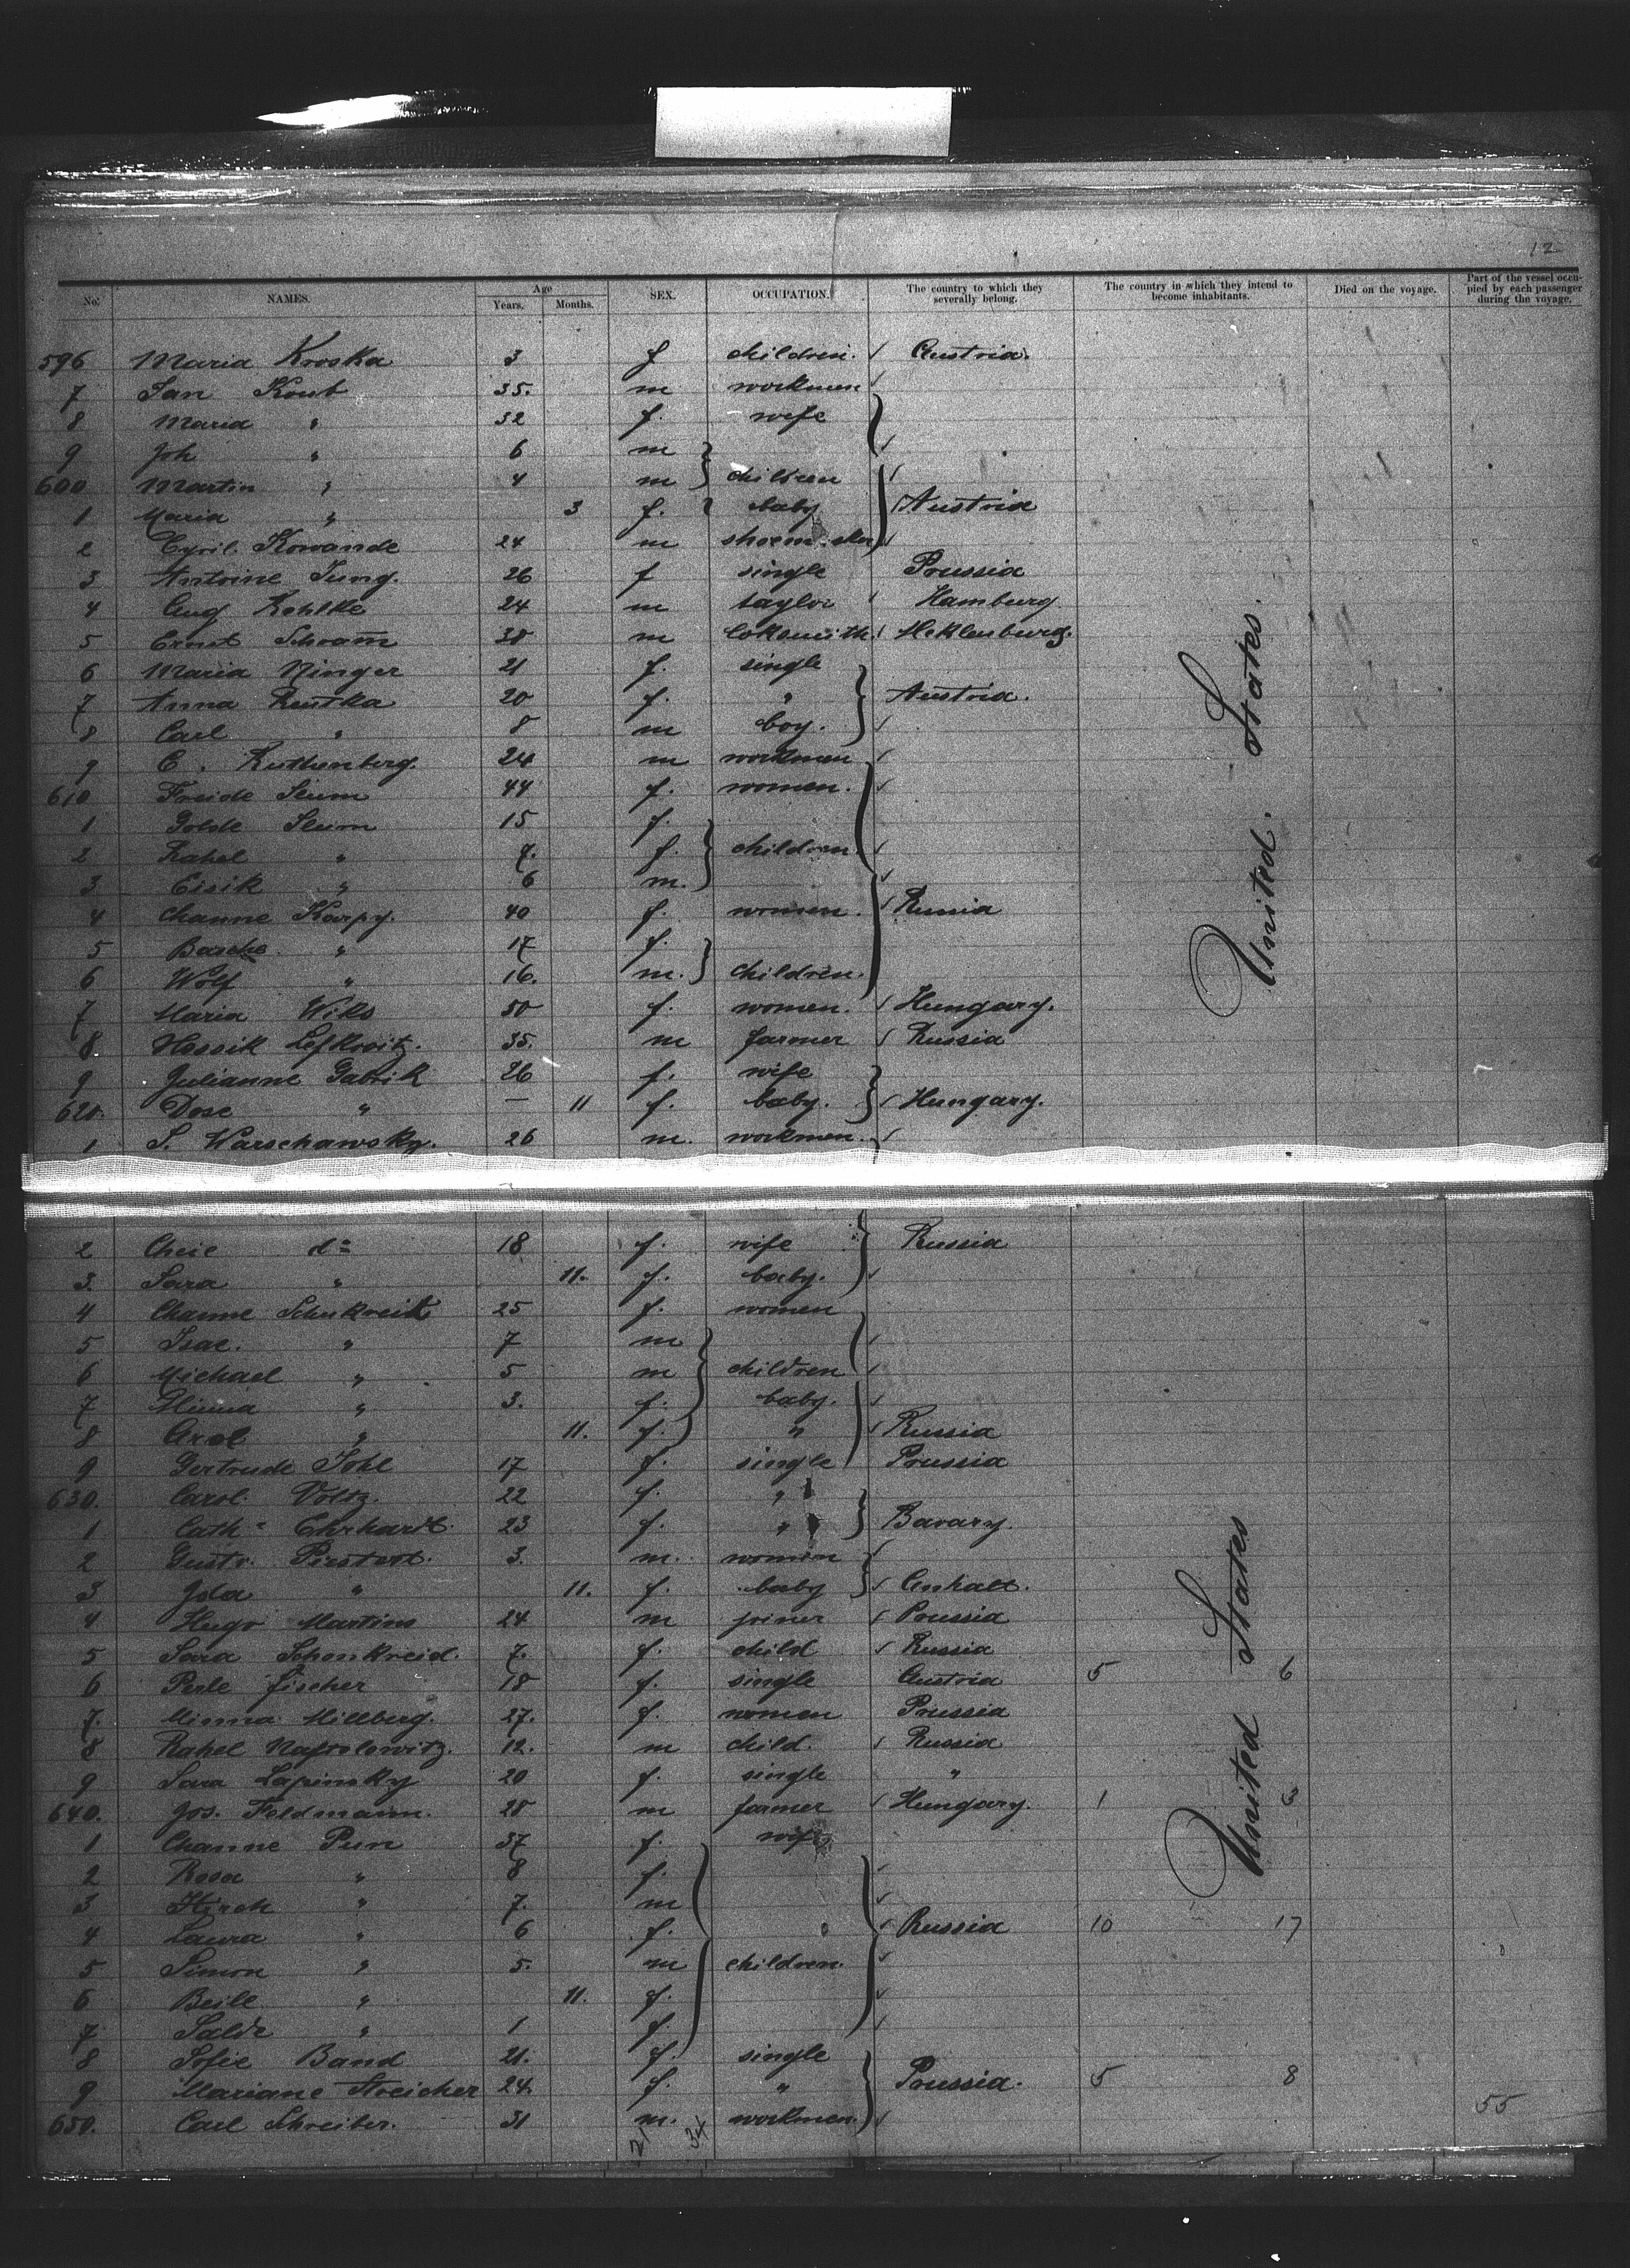 12
No. NAMES. Age Years. Months. SEX. OCCUPATION. The country to which they severally belong. The country in which they intend to become inhabitants. Died on the voyage. Part of the vessel occupied by each passenger during the voyage.
596 Maria Kroska 3 f children. Austria.
7 Jan Koub 35. m workmen
8 Maria " 32 f. wife
9 Joh " 6 m
600 Martin " 4 m children
1 Maria " 3 f. baby Austria
2 Cyril. Kowande 24 m
3 Antoine Jung. 26 f single Prussia
4 Aug Kohlke 24 m taylor Hamburg
5 Ernst Schram 38 m loksmith. Meklenburg.
6 Maria Ninger 21 f. single
7 Anna Rentka 20 f. " Austria.
8 Carl " 8 m boy.
9 C. Ruthenberg. 24 m workmen
610 Freide 44 f. women.
1 Golde 15 f.
2 Rahel " 7. f. children
3 Eisik " 6 m.
4 Channe Karpy. 40 f. women. Russia
5 Basche " 17 f.
6 Wolf " 16. m. children.
7 Maria Wiks 50 f. women. Hungary.
8 Hessik Lefkovitz. 35. m farmer Russia
9 Julianne Gabrik 26 f. wife
620. Dose " — 11 f. baby. Hungary.
1 S. Warschawsky. 26 m. workmen.
2 Cheie do 18 f. wife Russia
3. Sara " 11. f. baby.
4 Channe Schukreit 25 f. women
5 Isac. " 7 m
6 Michael " 5 m children
7 Minna " 3. f. baby.
8 " 11. f. " Russia
9 Gertrude Pohl 17 f. single Prussia
630. Carol. Voltz. 22 f. "
1 Cath. Ehrhardt. 23 f. " Bavary.
2 Gustv. 3. m. women
3 Ida " 11. f. baby Anhalt.
4 Hugo Martins 24 m joiner Prussia
5 Sara Schonkreid. 7. f. child Russia
6 Perle Fischer 18 f. single Austria 5 6
7. Minna Millberg. 27. f. women Prussia
8 Rahel Naftolowitz. 12. m child. Russia
9 Sara Lapinsky 20 f. single "
640. Jos. Feldmann. 28 m farmer Hungary. 1 3
1 Channe Pun 37 f. wife
2 Rosa " 8 f.
3 Hirch " 7. m
4 Laura " 6 f. Russia 10 17
5 Simon " 5. m children.
6 Beile " 11. f.
7 " 1 f.
8 Sofie Band 21. f. single
9 Mariane Streicher 24. f. " Prussia. 5 8
650. Carl Schreiber. 31 m. workmen.
21 34
55
United States.
United States